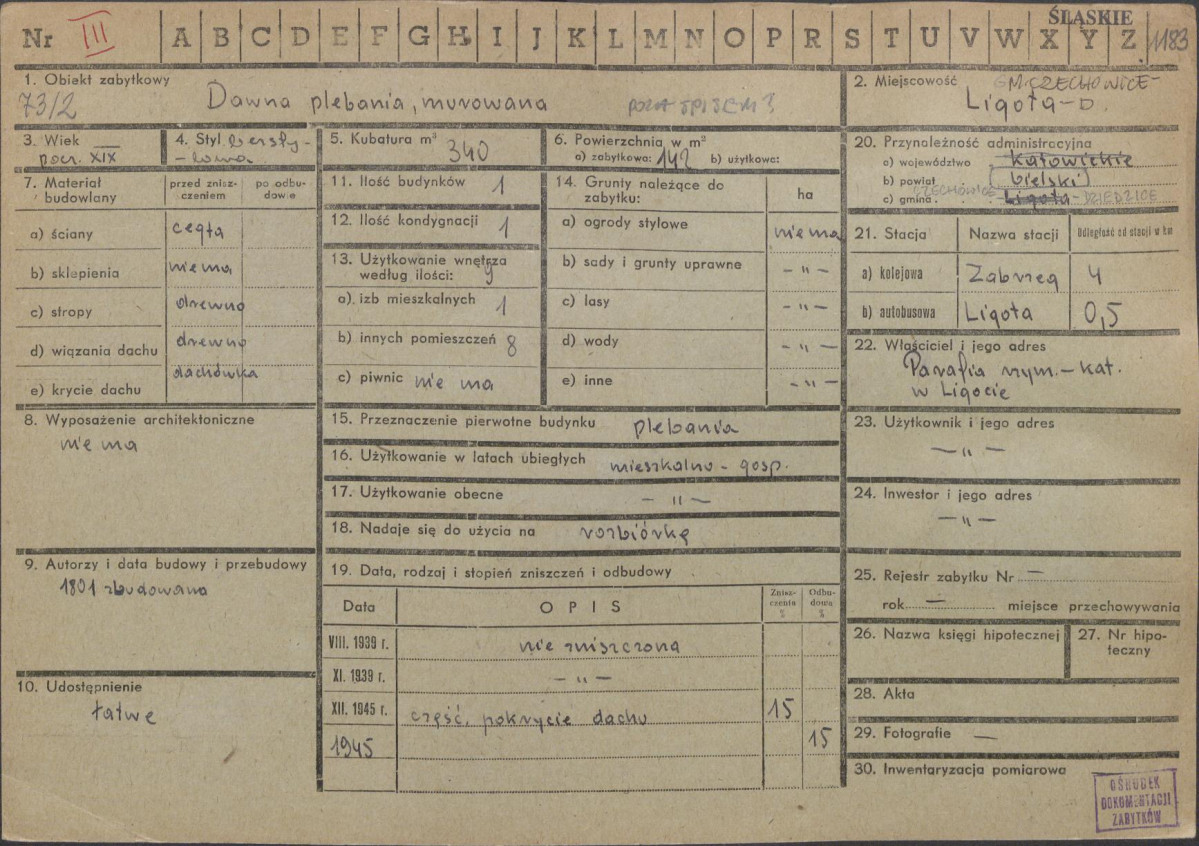 ŚLĄSKIE
Nr III A B C D E F G H I J K L M N O P R S T U V W X Y Z 1183
1. Obiekt zabytkowy
73/2 Dawna plebania, murowana POZA SPISEM?
2. Miejscowość GM. CZECHOWICE-
Ligota-D.
3. Wiek
pocz. XIX
4. Styl bezsty-
-lowa
5. Kubatura m³
340
6. Powierzchnia w m²
a) zabytkowa: 142 b) użytkowe:
20. Przynoleżność administracyjna
a) województwo katowickie
b) powiat bielski
c) gmina Ligota CZECHOWICE DZIEDZICE
7. Materiał budowlany
przed znisz-
czeniem
po odbu-
dowie
a) ściany cegła
b) sklepienia nie ma
c) stropy drewno
d) wiązania dachu drewno
e) krycie dachu dachówka
11. Ilość budynków 1
12. Ilość kondygnacji 1
13. Użytkowanie wnętrza
według ilości: 9
a) izb mieszkalnych 1
b) innych pomieszczeń 8
c) piwnic nie ma
14. Grunty należące do
zabytku:
ha
a) ogrody stylowe nie ma
b) sady i grunty uprawne -"-
c) lasy -"-
d) wody -"-
e) inne -"-
21. Stacja Nazwa stacji Odległość od stacji w km
a) kolejowa Zabrzeg 4
b) autobusowa Ligota 0,5
22. Właściciel i jego adres
Parafia rzym.-kat.
w Ligocie
8. Wyposażenie architektoniczne
nie ma
15. Przeznaczenie pierwotne budynku plebania
16. Użytkowanie w latach ubiegłych mieszkalno-gosp.
17. Użytkowanie obecne -"-
18. Nadaje się do użycia na rozbiórkę
23. Użytkownik i jego adres
-"-
24. Inwestor i jego adres
-"-
9. Autorzy i data budowy i przebudowy
1801 zbudowana
19. Data, rodzaj i stopień zniszczeń i odbudowy
Data OPIS Znisz-
czenia
% Odbu-
dowa
%
VIII. 1939 r. nie zniszczona
XI. 1939 r. -"-
XII. 1945 r. część. pokrycie dachu 15
1945 15
25. Rejestr zabytku Nr —
rok — miejsce przechowywania
26. Nazwa księgi hipotecznej
27. Nr hipo-
teczny
10. Udostępnienie
łatwe
28. Akta
29. Fotografie —
30. Inwentaryzacja pomiarowa
OŚRODEK
DOKUMENTACJI
ZABYTKÓW